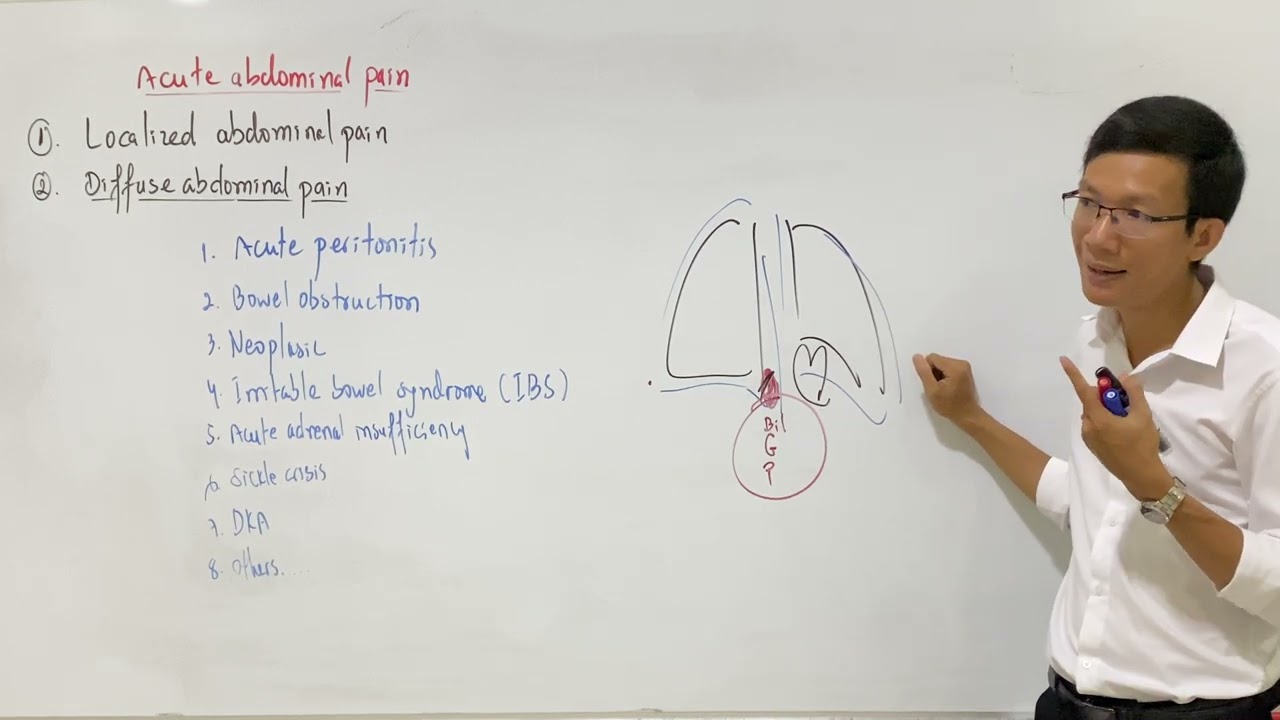 Acute abdominal pain
①. Localized abdominal pain
②. Diffuse abdominal pain
1. Acute peritonitis
2. Bowel obstruction
3. Neoplasic
4. Irritable bowel syndrome (IBS)
5. Acute adrenal insufficiency
6. Sickle crisis
7. DKA
8. Others.....
Bil
G
P